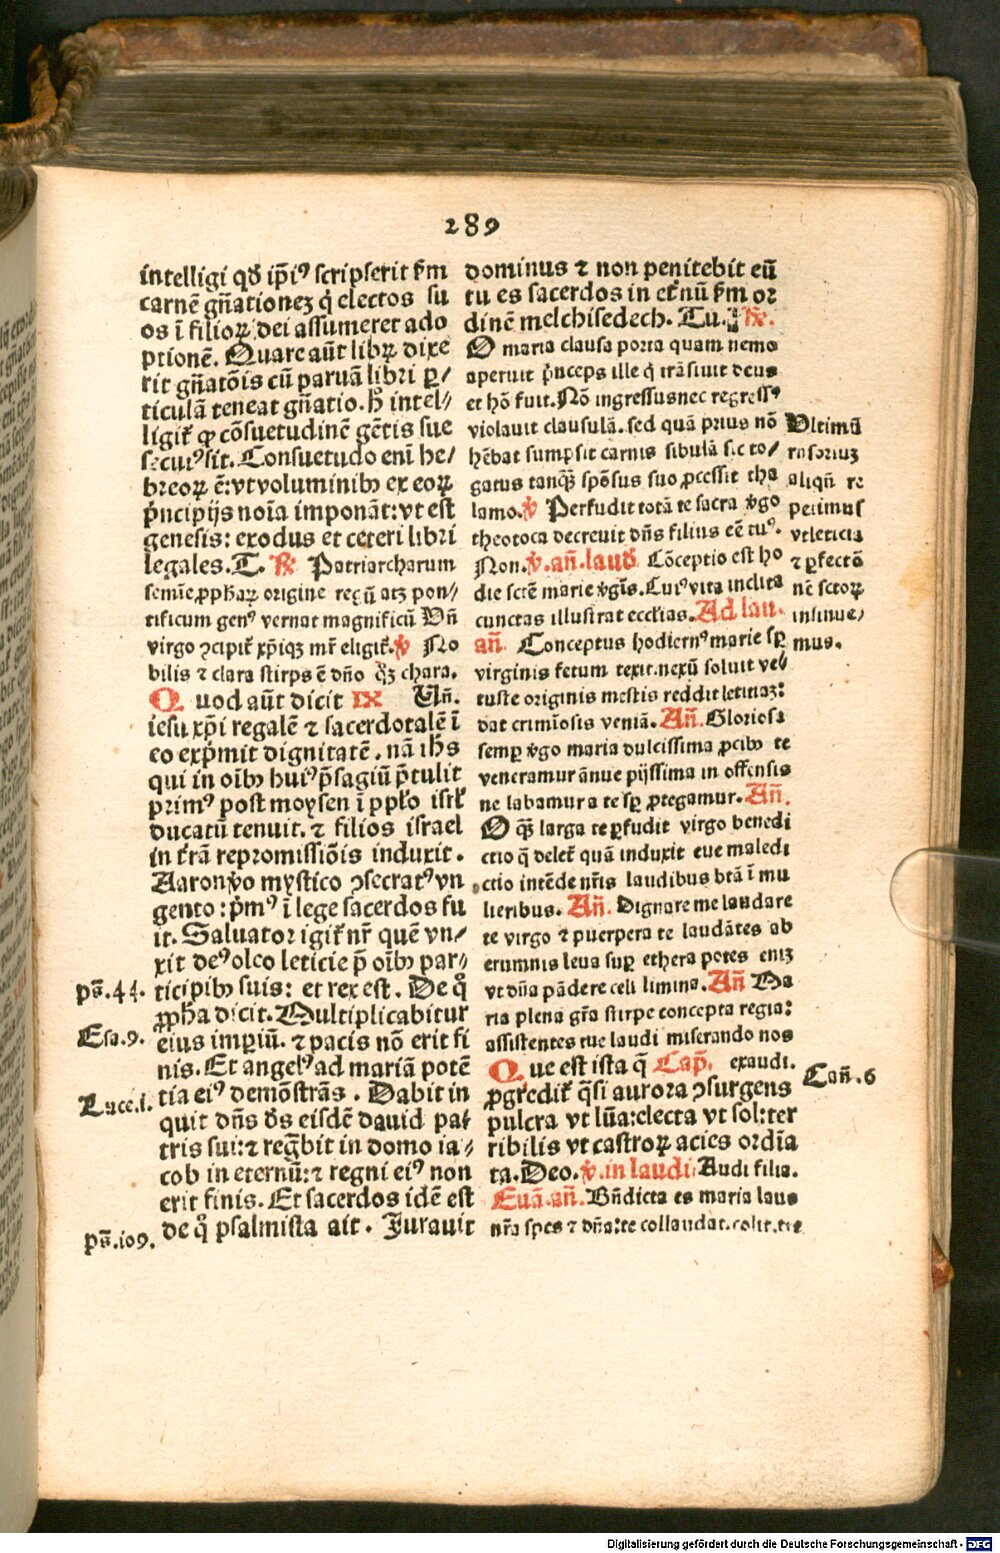 289
intelligi qđ ip̄iꝰ scripserit ẜm
carnē gn̄ationeꝫ q̇ electos su
os ī filioꝝ dei assumeret ado
ptionē. Quare aūt libꝝ dixe
rit gn̄atōis cū paruā libri ꝑ/
ticulā teneat gn̄atio. h̄ intel/
ligit̄ ꝙ cōsuetudinē gētis sue
secutꝰ sit. Consuetudo eni he/
breoꝝ ē: vt voluminibꝰ ex eoꝝ
p̄ncipijs noīa imponāt: vt est
genesis: exodus et ceteri libri
legales. T. ℟ Patriarcharum
semīe ꝓph̄aꝝ origine regū atꝫ pon/
tificum genꝰ vernat magnificū Vn̄
virgo ꝯcipit̄ xp̄iqꝫ mr̄ eligit̄. ℣ No
bilis ⁊ clara stirps ē dn̄o q̄ꝫ chara.
Quod aūt dicit IX Vn̄.
iesu xp̄i regalē ⁊ sacerdotalē ī
eo exp̄mit dignitatē. nā ih̄s
qui in oībꝰ huiꝰ p̄sagiū p̄tulit
primꝰ post moysen ī pplo isrl̄
ducatū tenuit. ⁊ filios israel
in t̄rā repromissiōis induxit.
Aaron v̊o mystico ꝯsecratꝰ vn
gento: p̄mꝰ ī lege sacerdos fu
it. Saluator igit̄ nr̄ quē vn/
xit deꝰ olco leticie p̄ oībꝰ par/
ps̄.44. ticipibꝰ suis: et rex est. De q̊
ꝓph̄a dicit. Multiplicabitur
Esa.9. eius imꝑiū. ⁊ pacis nō erit fi
nis. Et angelꝰ ad mariā potē
Luce.i. tia eiꝰ demōstrās. Dabit in
quit dn̄s ds̄ eisdē dauid pat
tris sui: ⁊ regn̄bit in domo ia/
cob in eternū: ⁊ regni eiꝰ non
erit finis. Et sacerdos idē est
ps̄.109. de q̊ psalmista ait. Jurauit
dominus ⁊ non penitebit eū
tu es sacerdos in et̄nū ẜm or
dinē melchisedech. Tu. ℟.
O maria clausa porta quam nemo
aperuit p̄nceps ille q̇ trāsiuit deus
et hō fuit. Nō ingressus nec regressꝰ
violauit clausulā. sed quā prius nō
hēbat sumpsit carnis fibulā sic to/
gatus tanqꝫ spōsus suo ꝓcessit tha
lamo. ℣ Perfudit totā te sacra v̊go
theotoca decreuit dn̄s filius eē tuꝰ.
Non. ℣. an̄. laud̄ Cōceptio est ho
die sctē marie v̊gīs. Cuiꝰ vita inclita
cunctas illustrat ecclias. Ad lau.
an̄. Conceptus hodiernꝰ marie sꝑ
virginis fetum texit. nexū soluit ve/
tuste originis mestis reddit letitiaꝫ:
dat crimīosis veniā. An̄. Gloriosa
semꝑ v̊go maria dulcissima ꝓcibꝰ te
veneramur ānue pijssima in offensis
ne labamur a te sꝑ ꝓtegamur. An̄.
O q̄ꝫ larga te ꝑfudit virgo benedi
ctio q̄ delet̄ quā induxit eue maledi
ctio intēde nr̄is laudibus btā ī mu
lieribus. An̄. Dignare me laudare
te virgo ⁊ puerpera te laudātes ab
erumnis leua suꝑ ethera potes eniꝫ
vt dn̄a pādere celi limina. An̄ Ma
ria plena gr̄a stirpe concepta regia:
assistentes tue laudi miserando nos
Que est ista q̄ Cap̄. exaudi.
ꝓgr̄edit̄ q̄si aurora ꝯsurgens Can̄.6
pulcra vt lūa: electa vt sol: ter
ribilis vt castroꝝ acies ordīa
ta. Deo. ℣. in laudi. Audi filia.
Euā. an̄. Bn̄dicta es maria laus
nr̄a spes ⁊ dn̄a: te collaudat. colit. tie
Vltimū
rosoriuꝫ
aliqn̄ re
petimus
vt leticiā
⁊ ꝑfectō
nē sctoꝝ
insinue/
mus.
Digitalisierung gefördert durch die Deutsche Forschungsgemeinschaft - DFG